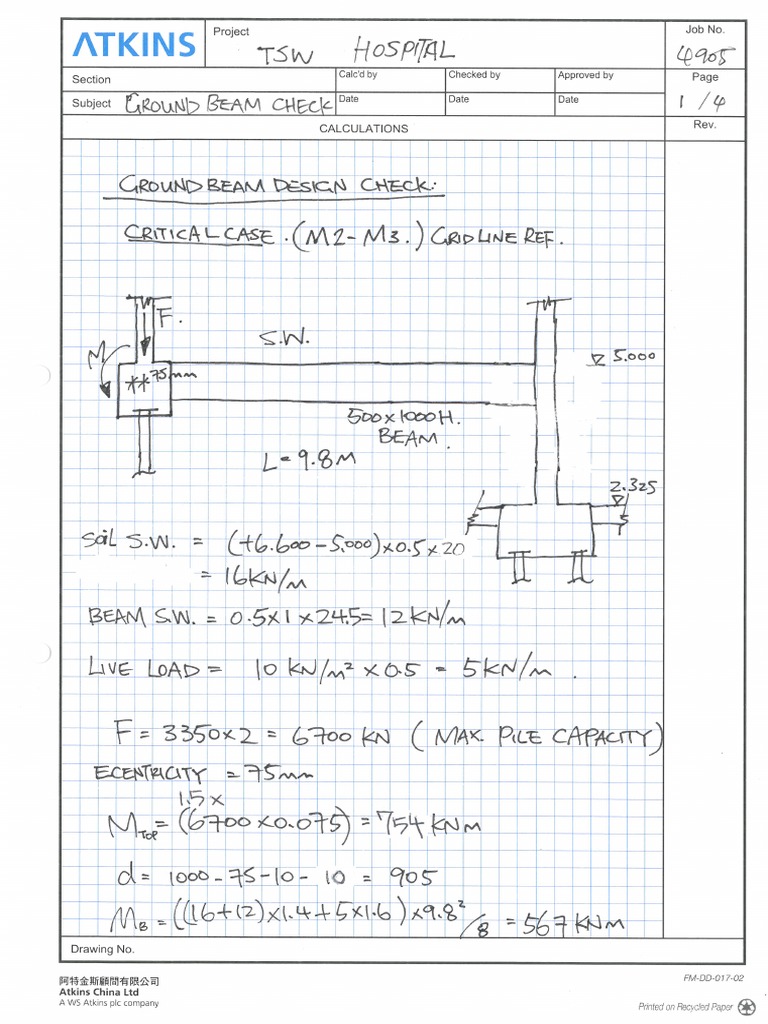 ATKINS
Project
TSW HOSPITAL
Job No.
4905
Section
Calc'd by
Checked by
Approved by
Page
Subject GROUND BEAM CHECK
Date
Date
Date
1/4
CALCULATIONS
Rev.
GROUND BEAM DESIGN CHECK:
CRITICAL CASE. (M2-M3.) GRIDLINE REF.
F.
S.W.
M
**75mm
5.000
500x1000H.
BEAM.
L=9.8M
2.325
SOIL S.W. = (+6.600-5.000)x0.5x20
= 16KN/m
BEAM S.W. = 0.5x1x24.5= 12KN/m
LIVE LOAD = 10 KN/m² x 0.5 = 5KN/m.
F = 3350x2 = 6700 KN (MAX. PILE CAPACITY)
ECENTRICITY = 75mm
1.5x
MTOP = (6700x0.075) = 754KNm
d = 1000-75-10-10 = 905
MB = ((16+12)x1.4+5x1.6)x9.8²/8 = 567KNm
Drawing No.
阿特金斯顧問有限公司
Atkins China Ltd
A WS Atkins plc company
FM-DD-017-02
Printed on Recycled Paper